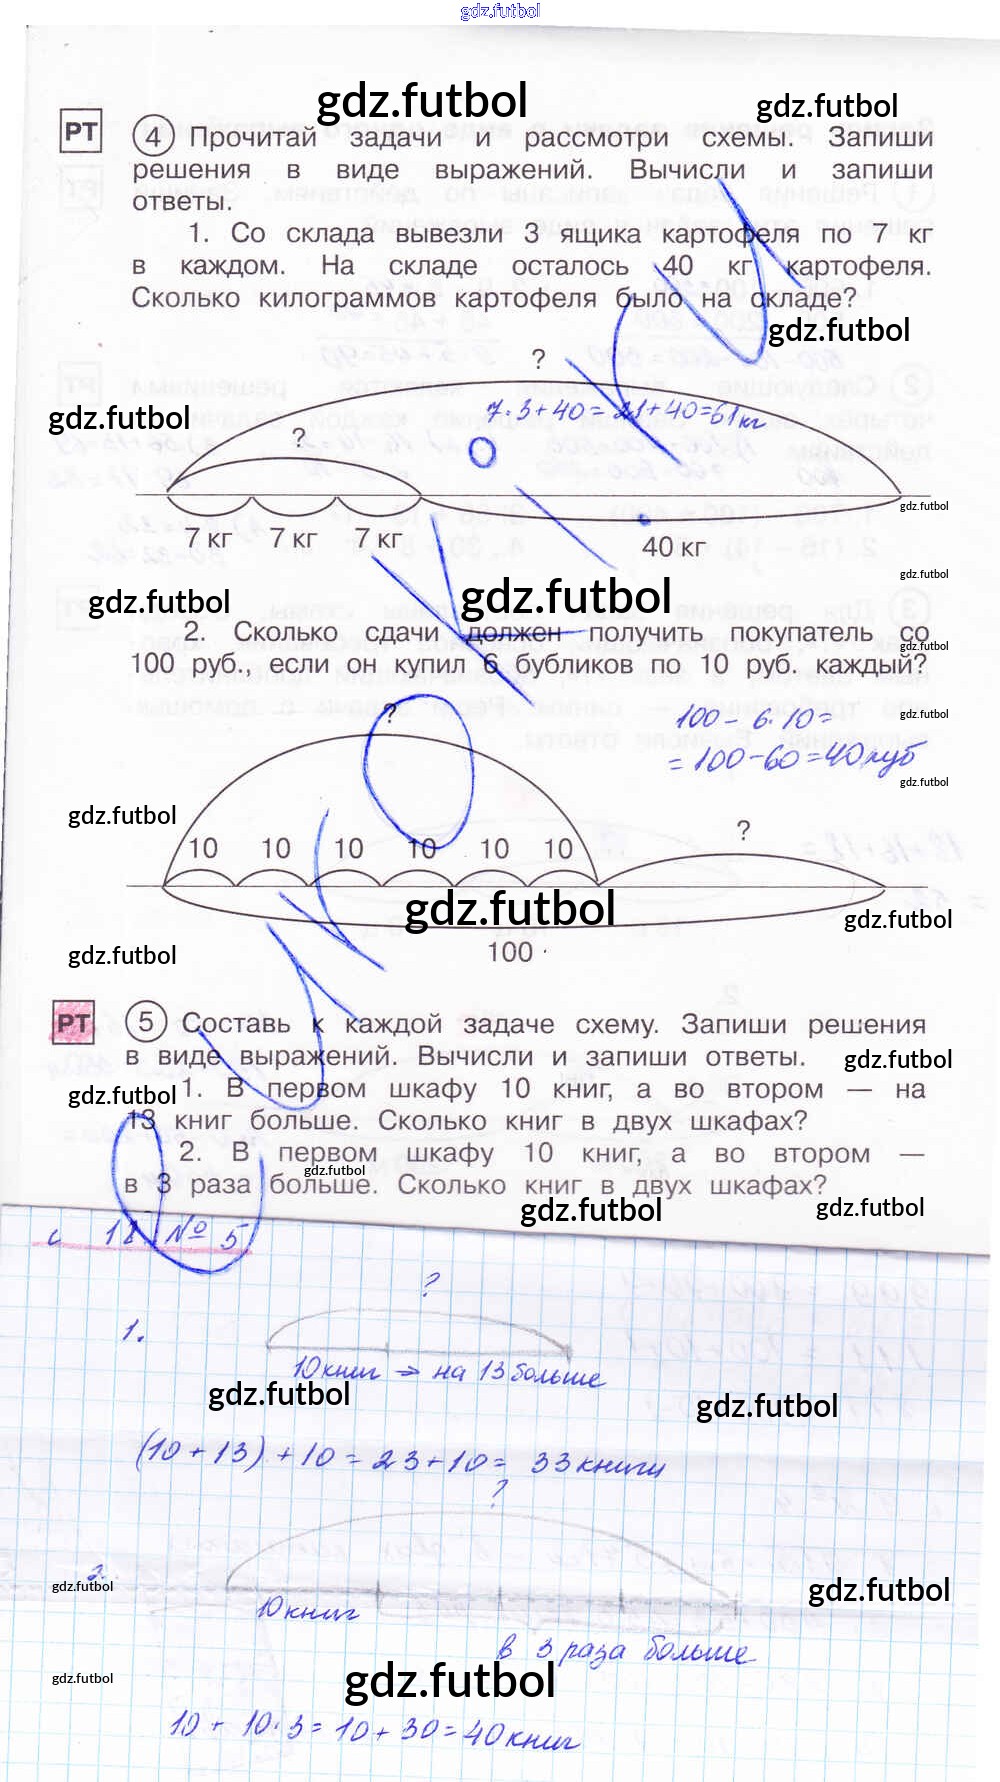 gdz.futbol
gdz.futbol
gdz.futbol
РТ 4 Прочитай задачи и рассмотри схемы. Запиши
решения в виде выражений. Вычисли и запиши
ответы.
1. Со склада вывезли 3 ящика картофеля по 7 кг
в каждом. На складе осталось 40 кг картофеля.
Сколько килограммов картофеля было на складе?
gdz.futbol
?
gdz.futbol
7·3+40=21+40=61кг
?
gdz.futbol
7 кг 7 кг 7 кг 40 кг
gdz.futbol
gdz.futbol
gdz.futbol
gdz.futbol
2. Сколько сдачи должен получить покупатель со
100 руб., если он купил 6 бубликов по 10 руб. каждый?
gdz.futbol
?
100-6·10=
gdz.futbol
=100-60=40руб
gdz.futbol
gdz.futbol
?
10 10 10 10 10 10
gdz.futbol
gdz.futbol
gdz.futbol
100
РТ 5 Составь к каждой задаче схему. Запиши решения
в виде выражений. Вычисли и запиши ответы.
gdz.futbol
1. В первом шкафу 10 книг, а во втором — на
gdz.futbol
13 книг больше. Сколько книг в двух шкафах?
2. В первом шкафу 10 книг, а во втором —
gdz.futbol
в 3 раза больше. Сколько книг в двух шкафах?
gdz.futbol
gdz.futbol
№ 5
?
1.
10книг → на 13 больше
gdz.futbol
gdz.futbol
(10+13)+10=23+10= 33 книги
?
2.
gdz.futbol
gdz.futbol
10книг
в 3 раза больше
gdz.futbol
gdz.futbol
10+10·3=10+30=40книг